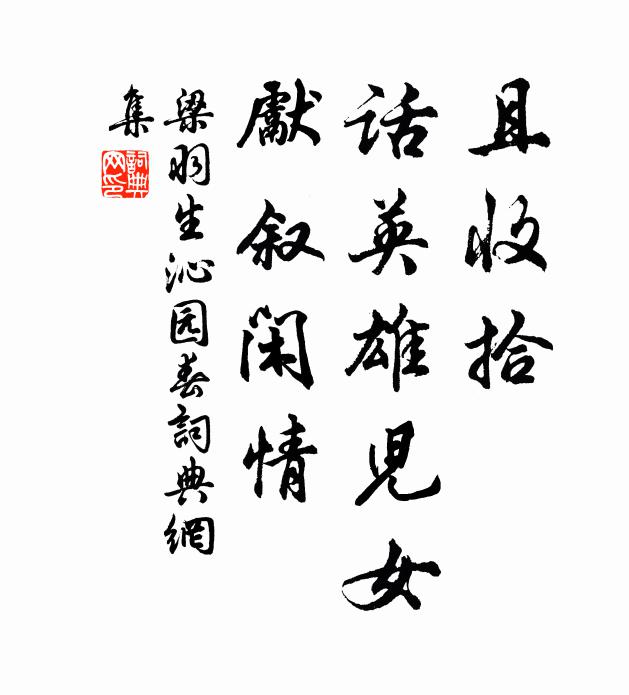 且收拾
話英雄兒女
獻叙闲情
梁羽生沁园春詞典網
集
詞典网印